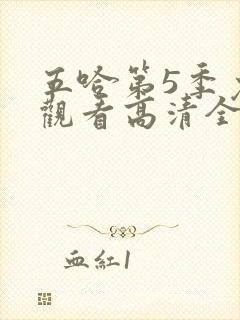 五哈第5季
觀看高清全
血紅1